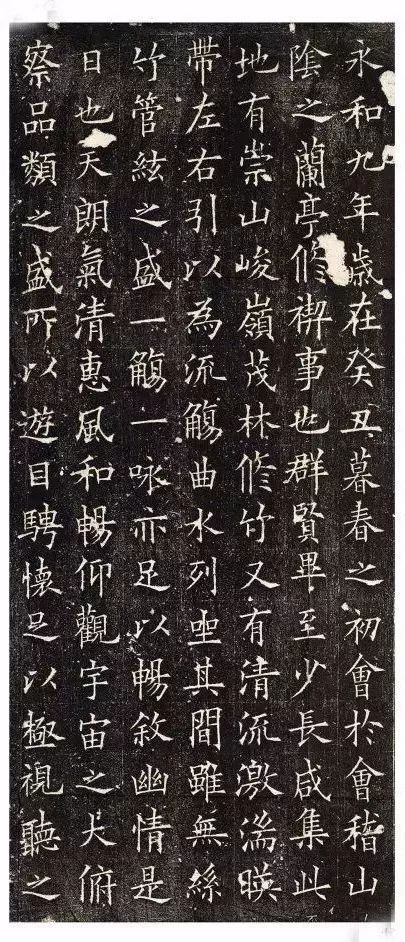 永和九年歳在癸丑暮春之初會於會稽山
陰之蘭亭修禊事也群賢畢至少長咸集此
地有崇山峻嶺茂林修竹又有清流激湍暎
帶左右引以為流觴曲水列坐其間雖無絲
竹管絃之盛一觴一咏亦足以暢敘幽情是
日也天朗氣清惠風和暢仰觀宇宙之大俯
察品類之盛所以遊目騁懷足以極視聽之